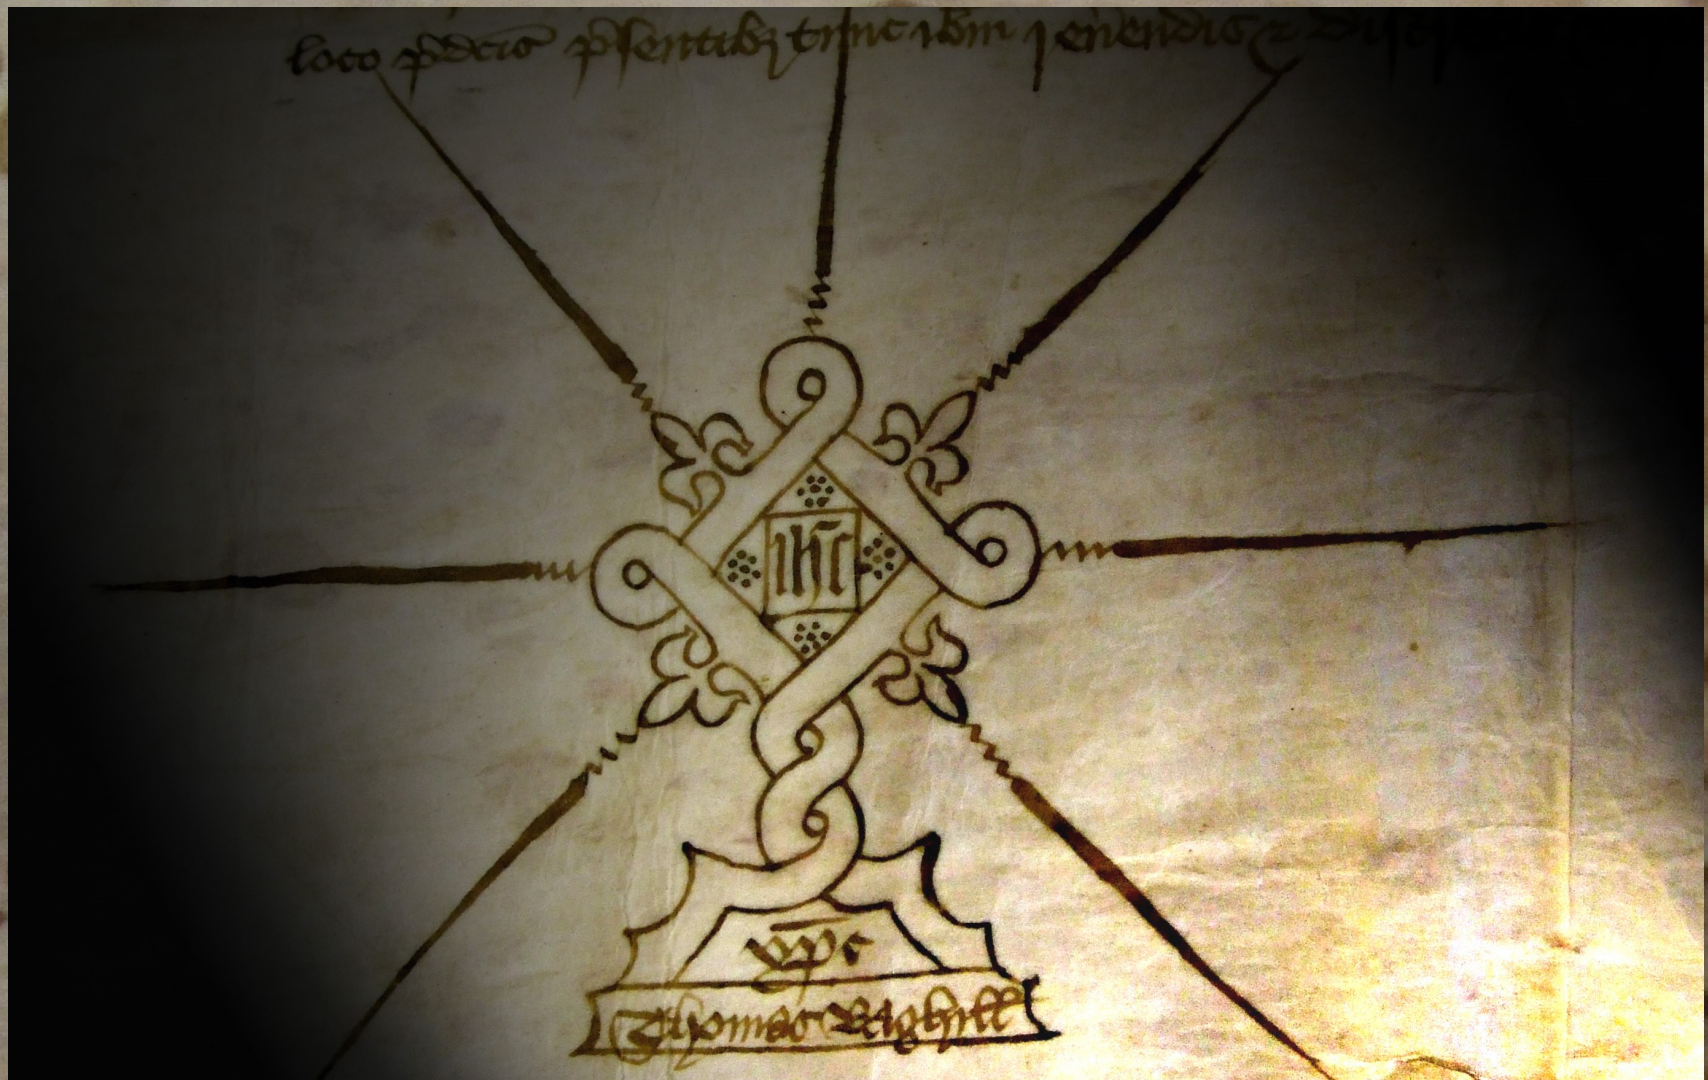 loco p̄dcis p̄sentibꝫ tunc ibm
ihc
xp̄c
Thomas Baghill